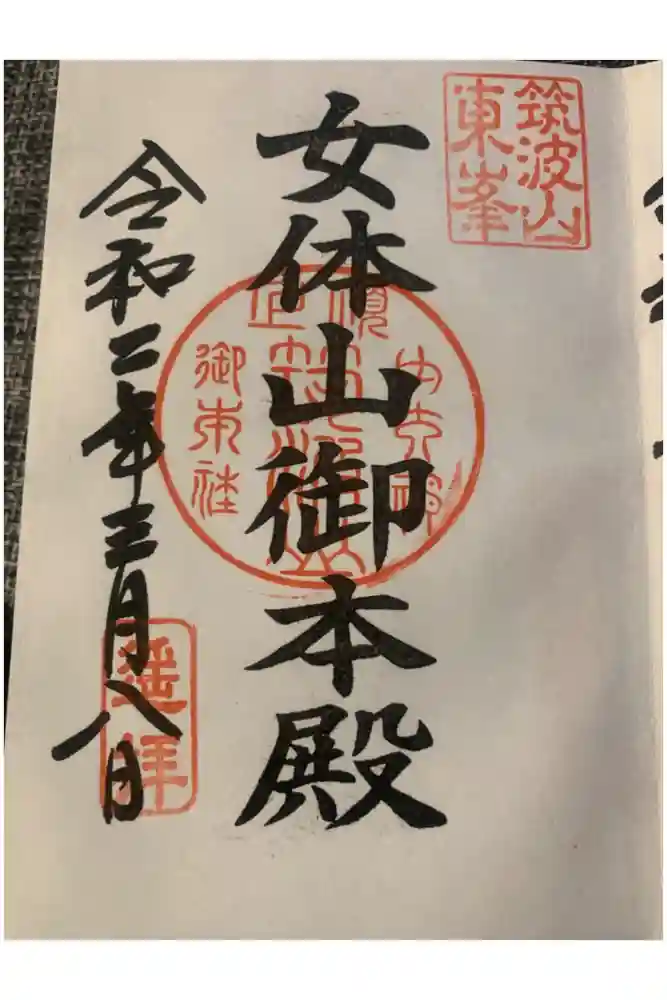 筑波山
東峯
女体山御本殿
御東社
令和二年三月八日
遥拝